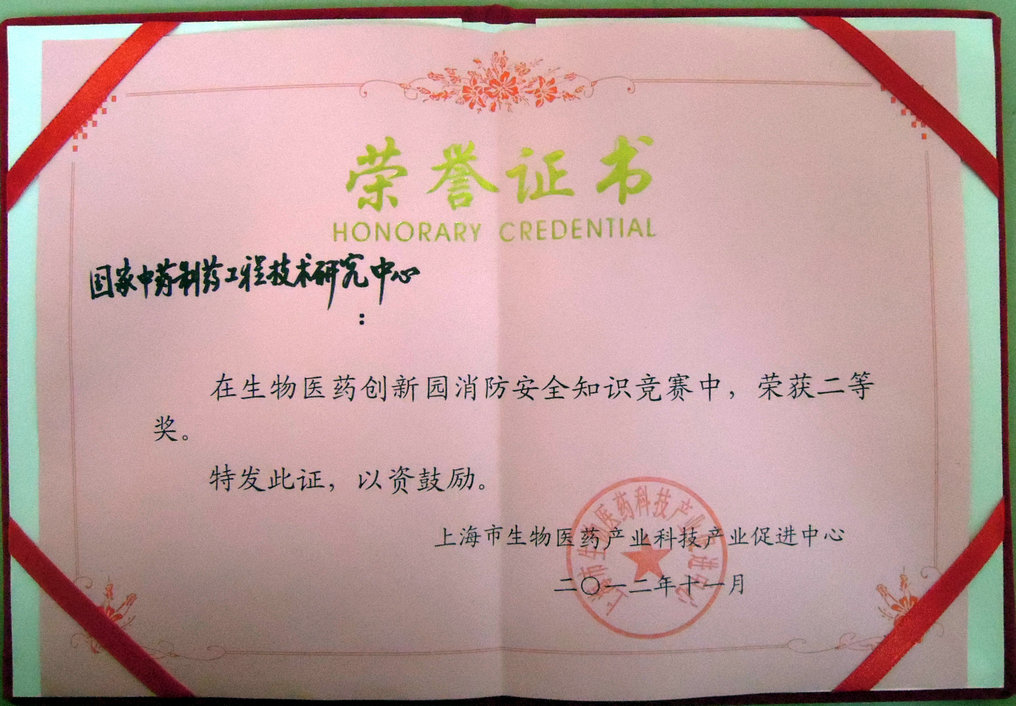 荣誉证书
HONORARY CREDENTIAL
国家中药制药工程技术研究中心
：
在生物医药创新园消防安全知识竞赛中，荣获二等
奖。
特发此证，以资鼓励。
上海市生物医药产业科技产业促进中心
二〇一二年十一月
上海市生物医药科技产业促进中心